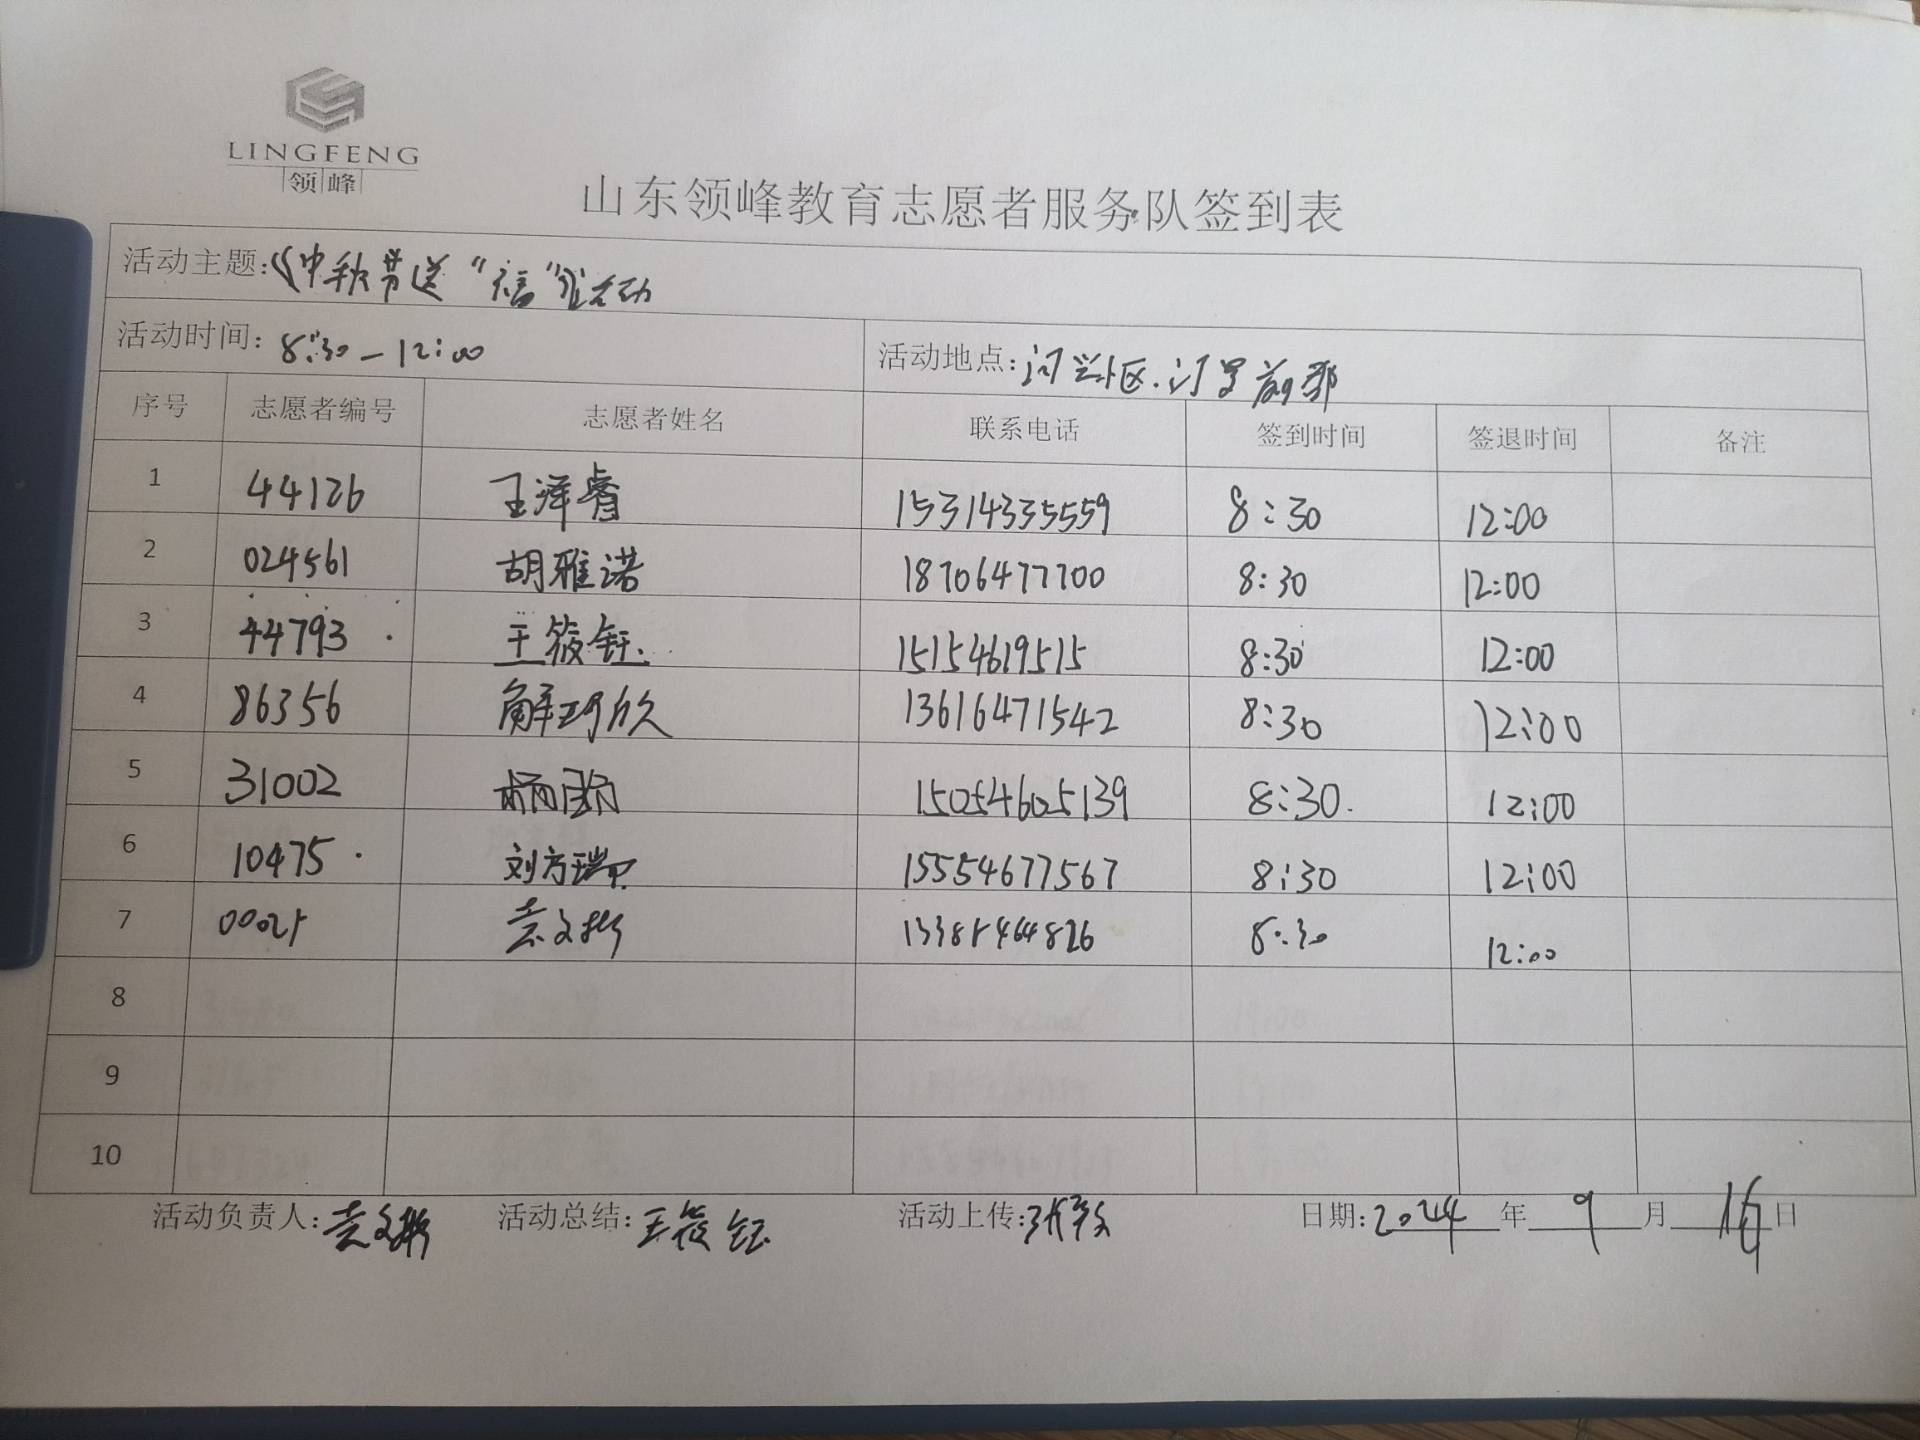 LINGFENG
领峰
山东领峰教育志愿者服务队签到表
活动主题:《中秋节送“福”》活动
活动时间: 8:30-12:00 活动地点:
序号 志愿者编号 志愿者姓名 联系电话 签到时间 签退时间 备注
1 44126 王泽睿 15314335559 8:30 12:00
2 024561 胡雅诺 18706477700 8:30 12:00
3 44793 王筱钰 15154619515 8:30 12:00
4 86356 解珂欣 13616471542 8:30 12:00
5 31002 15054605139 8:30 12:00
6 10475 刘方瑞 15554677567 8:30 12:00
7 袁文彬 8:30 12:00
8
9
10
活动负责人:袁文彬 活动总结:王筱钰 活动上传: 日期:2024年9月16日